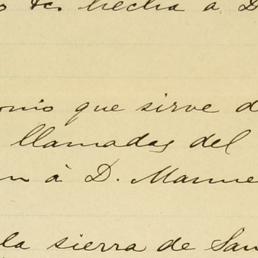 hecha a D
que sirve d
llamadas del
n à D. Manue
la sierra de San